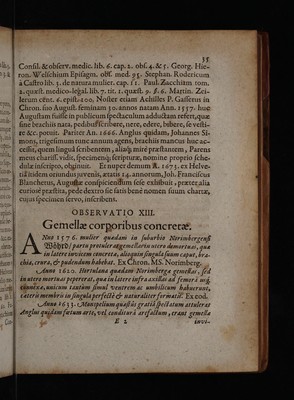 35
Consil. & observ. medic. lib. 6. cap. 2. obs. 4. & 5. Georg. Hier-
ron. Welschium Episagm. obs. med. 95. Stephan. Rodericum
à Castro lib. 3. de natura mulier. cap. 11. Paul. Zacchiam tom.
2. quæst. medico-legal. lib. 7. tit. 1. quæst. 9. §. 6. Martin. Zei-
lerum cent. 6. epist. 100. Noster etiam Achilles P. Gasserus in
Chron. suo August. feminam 30. annos natam Ann. 1557. huc
Augustam fuisse in publicum spectaculum adductam refert, quæ
sine brachiis nata, pedibus scribere, nere, edere, bibere, se vesti-
re &c. potuit. Pariter An. 1666. Anglus quidam, Johannes Si-
mons, trigesimum tunc annum agens, brachiis mancus huc ac-
cessit, quem lingua scribentem, aliaq; mirè præstantem, Parens
mem. charissi. vidit, specimenq; scripturæ, nomine proprio sche-
dulæ inscripto, obtinuit. Et nuper demum A. 1673. ex Helve-
tia itidem oriundus juvenis, ætatis 14. annorum, Joh. Franciscus
Blanchetus, Augustæ conspiciendum sese exhibuit, præter alia
curiosè præstita, pede dextro sic satis benè nomen suum chartæ,
cujus specimen servo, inscribens.
OBSERVATIO XIII.
Gemellæ corporibus concretæ.
ANno 1576. mulier quædam in suburbio Norimbergensi
Wöhrd / partu protulerat gemellas in utero demortuas, qua
in latere invicem concretæ, alioquin singula suum caput, bra-
chia, crura, & pudendum habebat. Ex Chron. MS. Norimberg.
Anno 1620. Herulana quædam Norimbergæ gemellas, sed
in utero mortuas pepererat, quæ in latere infra axillas ad femora usq;
connexæ, unicum tantùm simul ventrem ac umbilicum habuerunt,
cæteris membris in singulis perfectè & naturaliter formatis. Ex eod.
Anno 1633. Monspelium quæstûs gratiâ spectatum attulerat
Anglus quidam fœtum arte, vel conditurâ arefactum, erant gemella
E 2
invi-